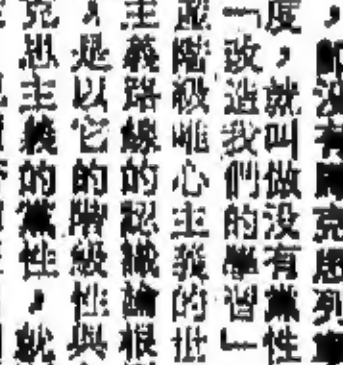 ，即没有馬克思列
度，就叫做没有黨性
「改造我們的學習」
階級唯心主義的世
主義路線的認識論根
，是以它的階級性與
克思主義的黨性，就